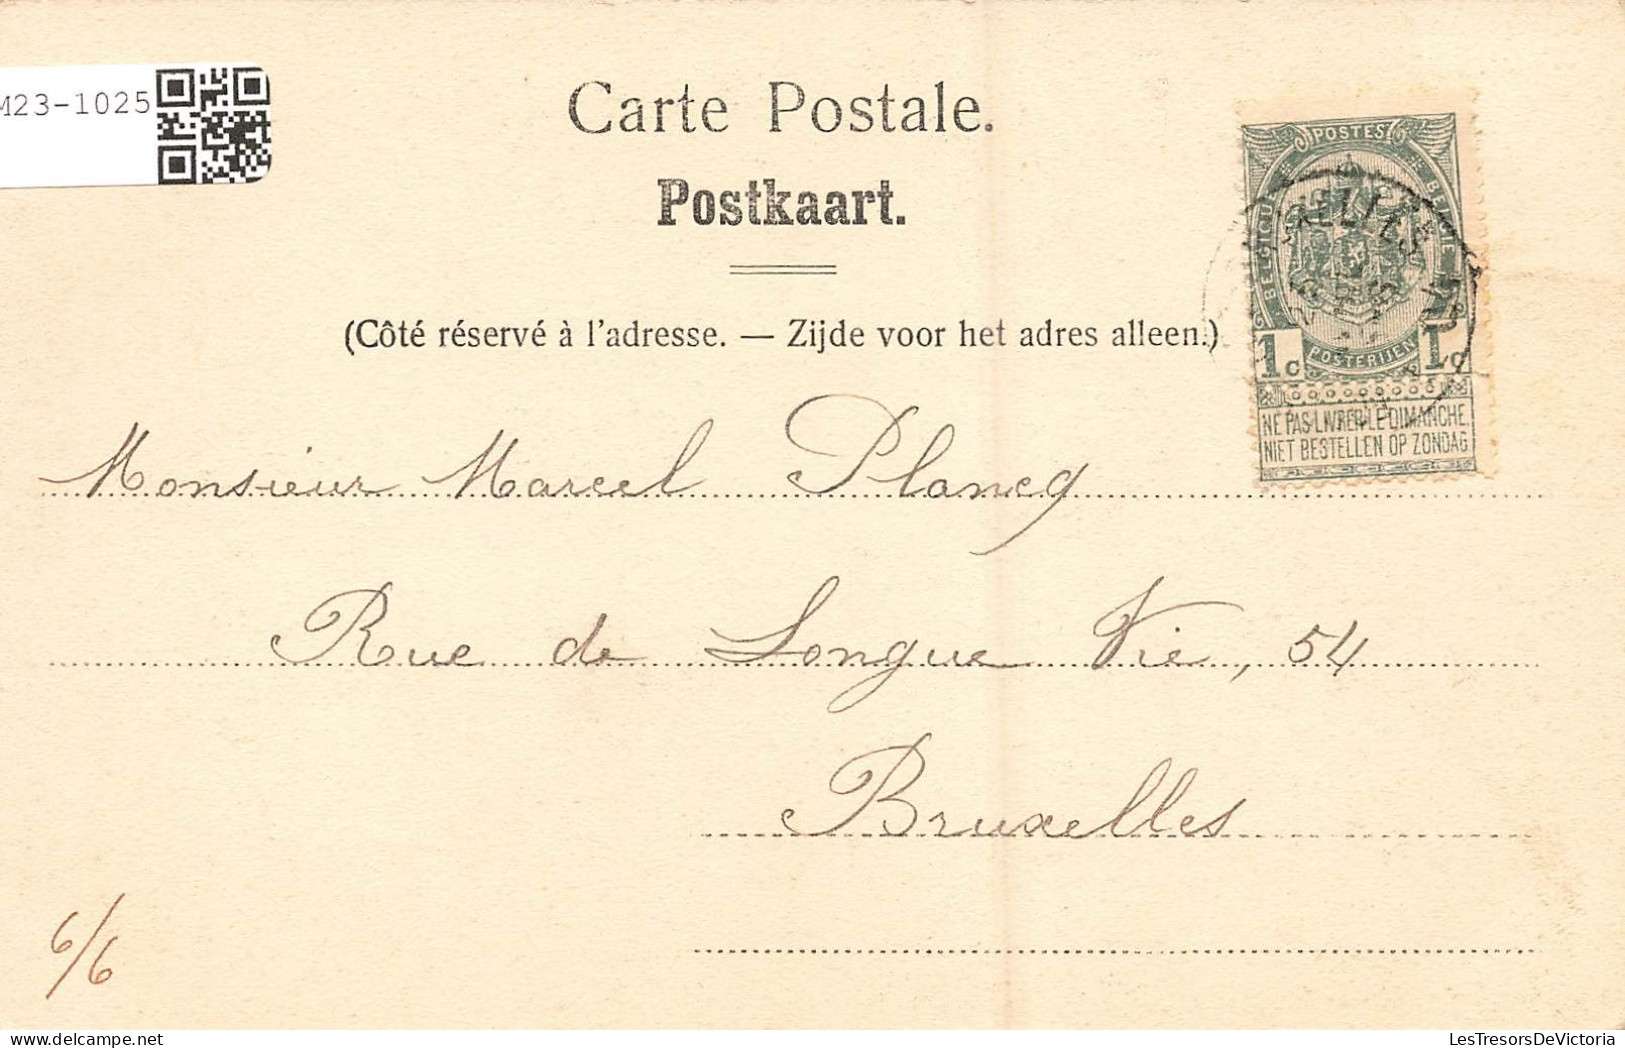 M23-1025
Carte Postale.
Postkaart.
(Côté réservé à l'adresse. — Zijde voor het adres alleen.)
POSTES
BELGIQUE
BELGIË
POSTERIJEN
1c 1c
NE PAS LIVRER LE DIMANCHE
NIET BESTELLEN OP ZONDAG
Monsieur Marcel Plancq
Rue de Longue Vie, 54
Bruxelles
6/6
LesTresorsDeVictoria